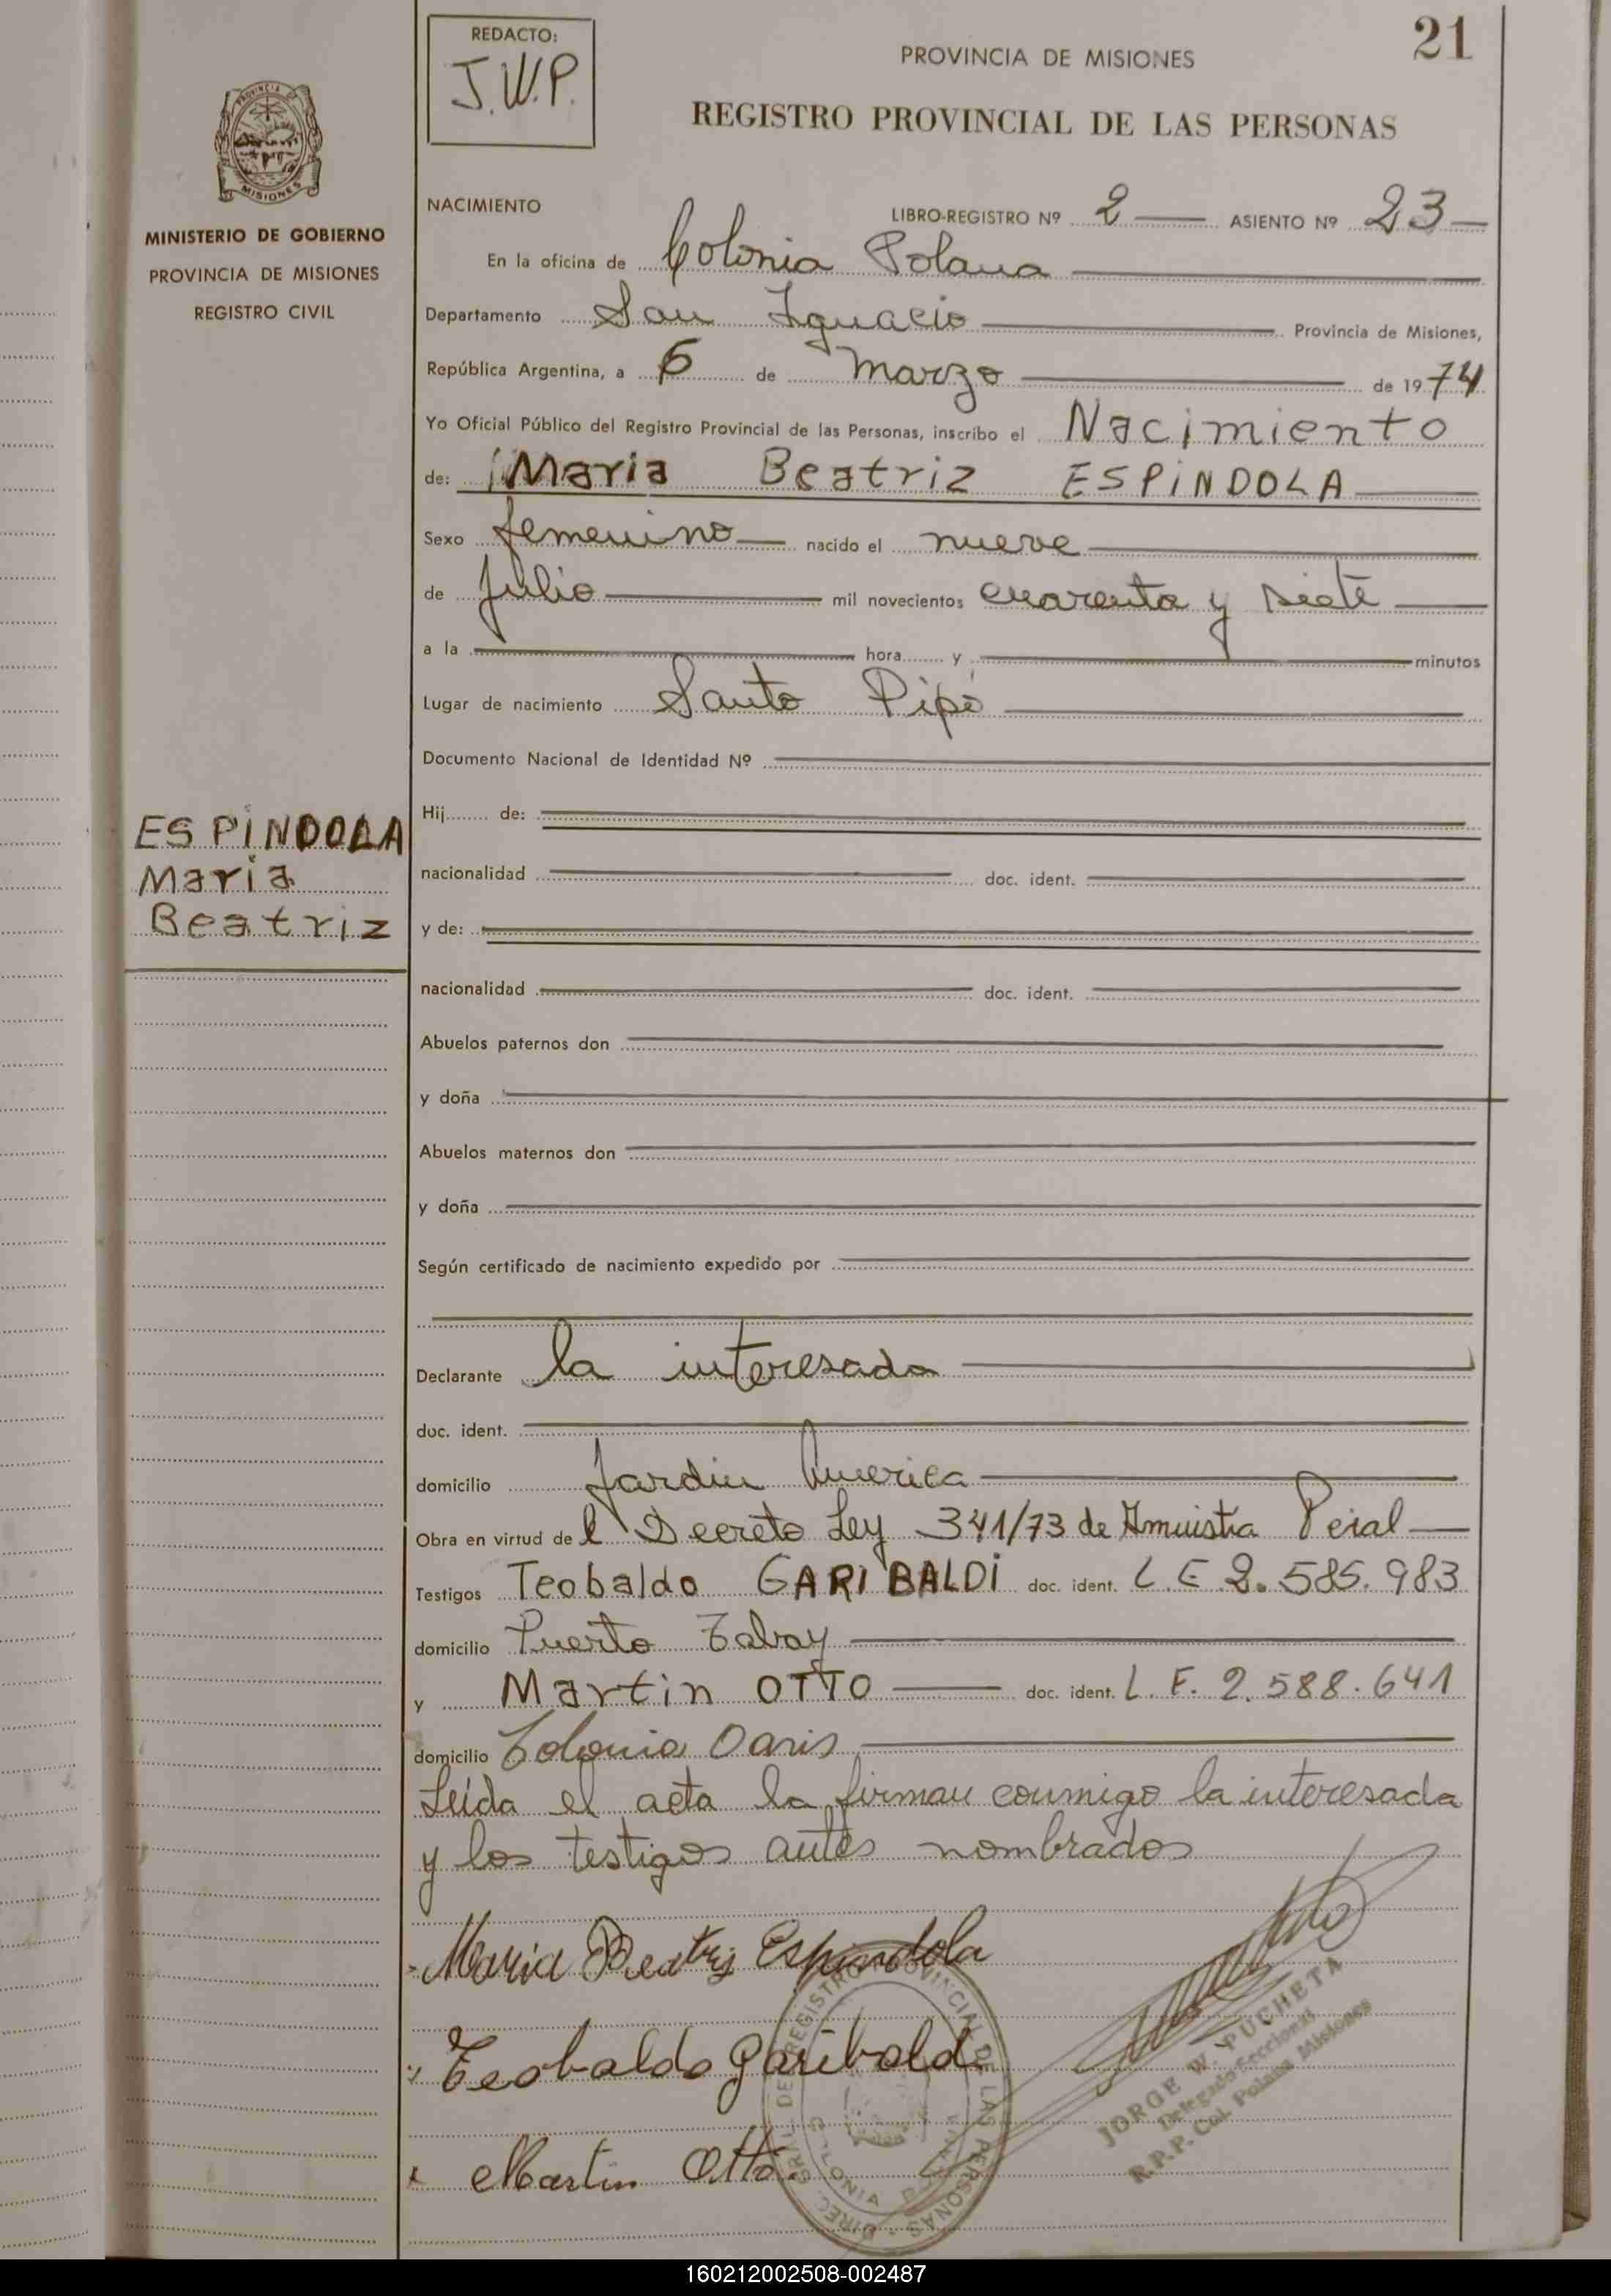 REDACTO:
J.W.P.
21
PROVINCIA DE MISIONES
REGISTRO PROVINCIAL DE LAS PERSONAS
PROVINCIA
MISIONES
MINISTERIO DE GOBIERNO
PROVINCIA DE MISIONES
REGISTRO CIVIL
NACIMIENTO LIBRO-REGISTRO Nº 2 ASIENTO Nº 23
En la oficina de Colonia Polana
Departamento San Ignacio Provincia de Misiones,
República Argentina, a 6 de marzo de 1974
Yo Oficial Público del Registro Provincial de las Personas, inscribo el Nacimiento
de: Maria Beatriz ESPINDOLA
Sexo femenino nacido el nueve
de Julio mil novecientos cuarenta y siete
a la hora y minutos
Lugar de nacimiento Santo Pipó
Documento Nacional de Identidad Nº
Hij de:
nacionalidad doc. ident.
y de:
nacionalidad doc. ident.
ESPINDOLA
Maria
Beatriz
Abuelos paternos don
y doña
Abuelos maternos don
y doña
Según certificado de nacimiento expedido por
Declarante la interesada
doc. ident.
domicilio Jardin America
Obra en virtud de l Decreto Ley 341/73 de Amnistia
Testigos Teobaldo GARIBALDI doc. ident. L E 2.585.983
domicilio Puerto Tabay
y Martin OTTO doc. ident. L. E. 2.588.641
domicilio Colonia Oasis
Leida el acta la firman conmigo la interesada
y los testigos antes nombrados
Maria Beatriz Espindola
Teobaldo Garibaldi
Martin Otto.
DIREC. GRAL. DEL REGISTRO PROVINCIAL DE LAS PERSONAS
COLONIA POLANA
JORGE W. PUCHETA
Delegado Seccional
R.P.P. Col. Polana Misiones
160212002508-002487